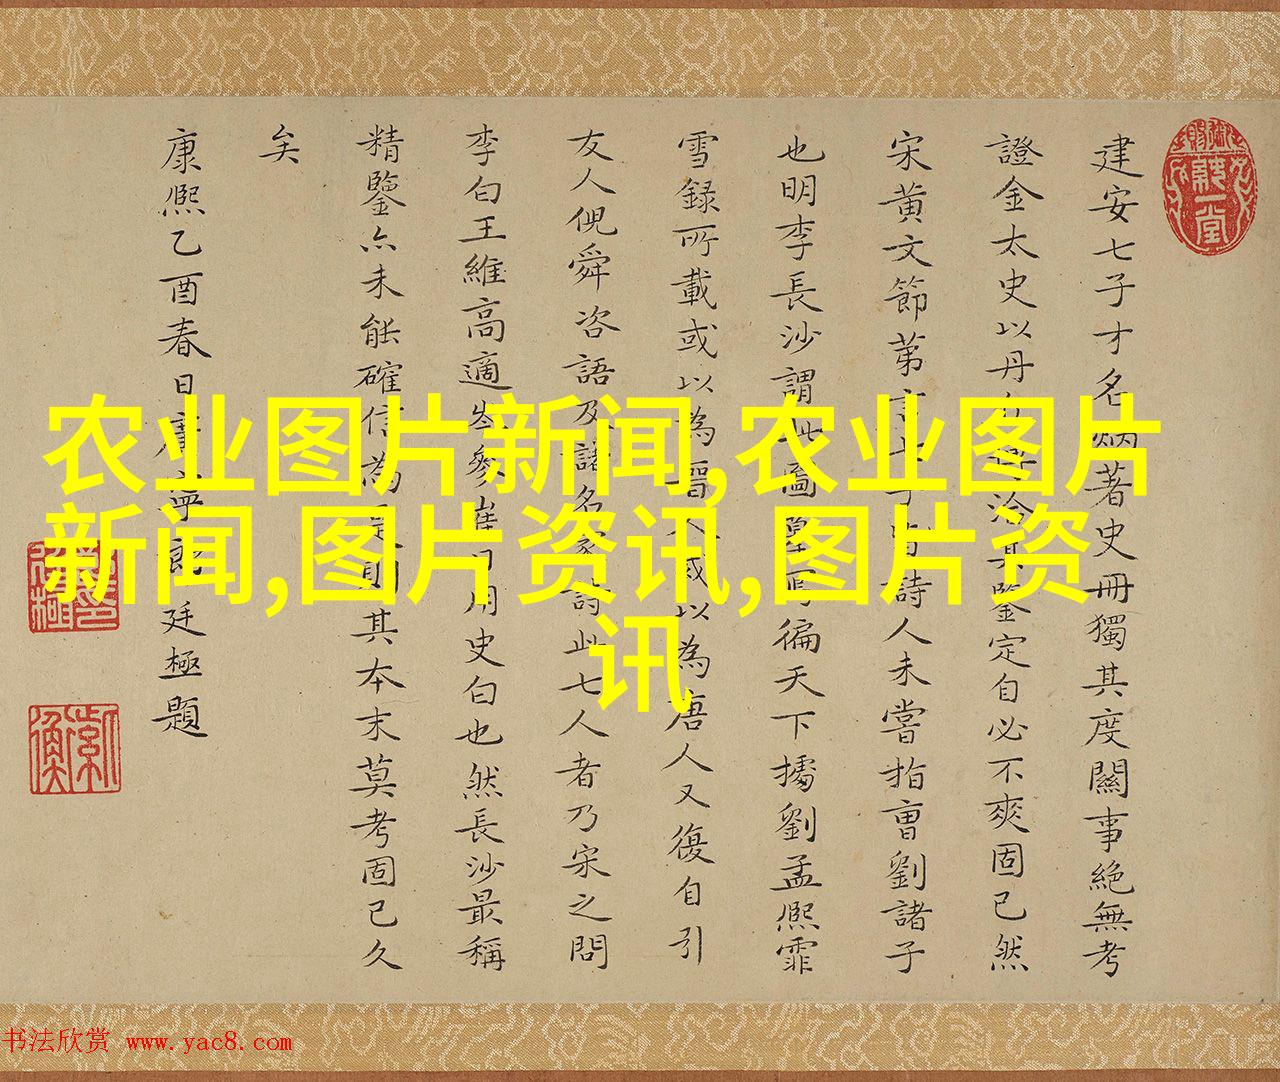 建安七子才名炳著史冊獨其度關事絶無考
證金太史以丹洽其鑒定自必不爽固已然
宋黄文節第言七子皆詩人未嘗指曹劉諸子
也明李長沙謂此圖摹寫徧天下據劉孟熙霏
雪録所載或以為晉人或以為唐人又復自引
友人倪舜咨語及諸名家詩此七人者乃宋之問
李白王維高適岑參崔用史白也然長沙最稱
精鑒亦未能確信為是則其本末莫考固已久
矣
康熙乙酉春日廣寧郎廷極題
农业图片新闻,农业图片
新闻,图片资讯,图片资
讯
书法欣赏 www.yac8.com